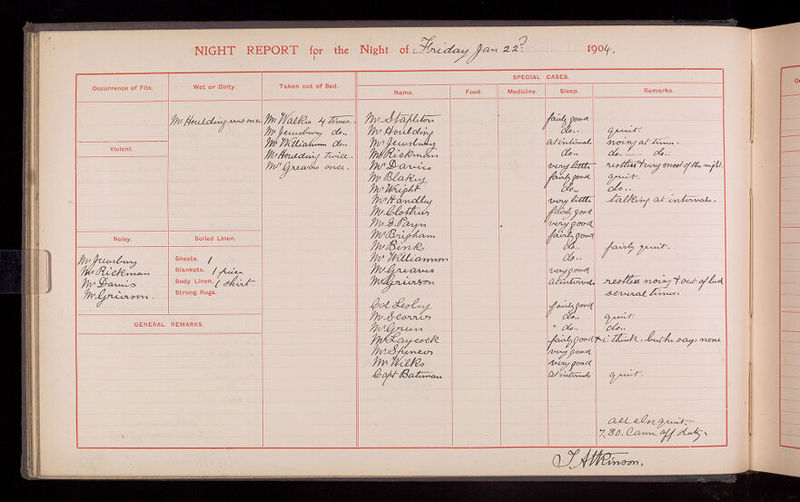 NIGHT REPORT for the Night of Friday Jan 22nd 1904.
SPECIAL CASES.
Occurrence of Fits. Wet or Dirty. Taken out of Bed. Name. Food. Medicine. Sleep. Remarks.
Mr Houlding wet once. Mr Walker 4 times. Mr Stapleton fairly good
Mr Jewsbury do. Mr Houlding do.. quiet.
Violent. Mr Williamson do. Mr Jewsbury at intervals noisy at times.
Mr Houlding twice. Mr Rickman do.. do. do.
Mr Greaves once. Mr Davies very little restless & very most of the night.
Mr Blakey fairly good quiet.
Mr Wright do.. do..
Mr Handley very little talking at intervals.
Mr Clothier fairly good
Mr G. Payn very good
Noisy. Soiled Linen. Mr Brigham fairly good
Mr Binks do.. fairly quiet.
Mr Jewsbury Sheets. 1 Mr Williamson do..
Mr Rickman Blankets. 1 Mr Greaves very good
Mr Davies Body Linen. 1 shirt Mr Grierson at intervals restless noisy & out of bed
Mr Grierson. Strong Rugs. several times.
Col Lesley fairly good
Mr Scorrer do.. quiet.
GENERAL REMARKS. Mr Green " do.. do..
Mr Laycock fairly good & i think. but he says none
Mr Spencer very good
Mr Wilks very good
Capt Bateman at intervals quiet.
all else quiet.
7.30. Came off duty.
J Atkinson.